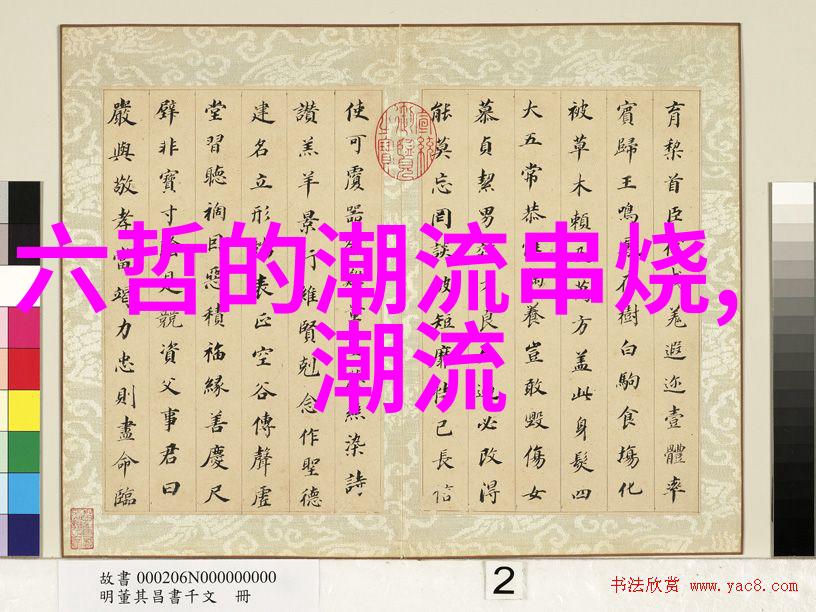 育棃首臣伏戎羌遐迩壹體率
賓歸王鳴鳳在樹白駒食場化
被草木賴及萬方盖此身髮四
大五常恭惟鞠養豈敢毀傷女
慕貞絜男才良過必改得
能莫忘罔談彼短靡恃己長信
使可覆器染詩
讚羔羊景行維賢剋念作聖德
建名立形端表正空谷傳聲虛
堂習聽禍因惡積福緣善慶尺
璧非寶寸陰是競資父事君曰
嚴與敬孝當竭力忠則盡命臨
六哲的潮流串烧,
潮流
故書 000206N000000000
明董其昌書千文 冊
2
书法欣赏 www.yac8.com